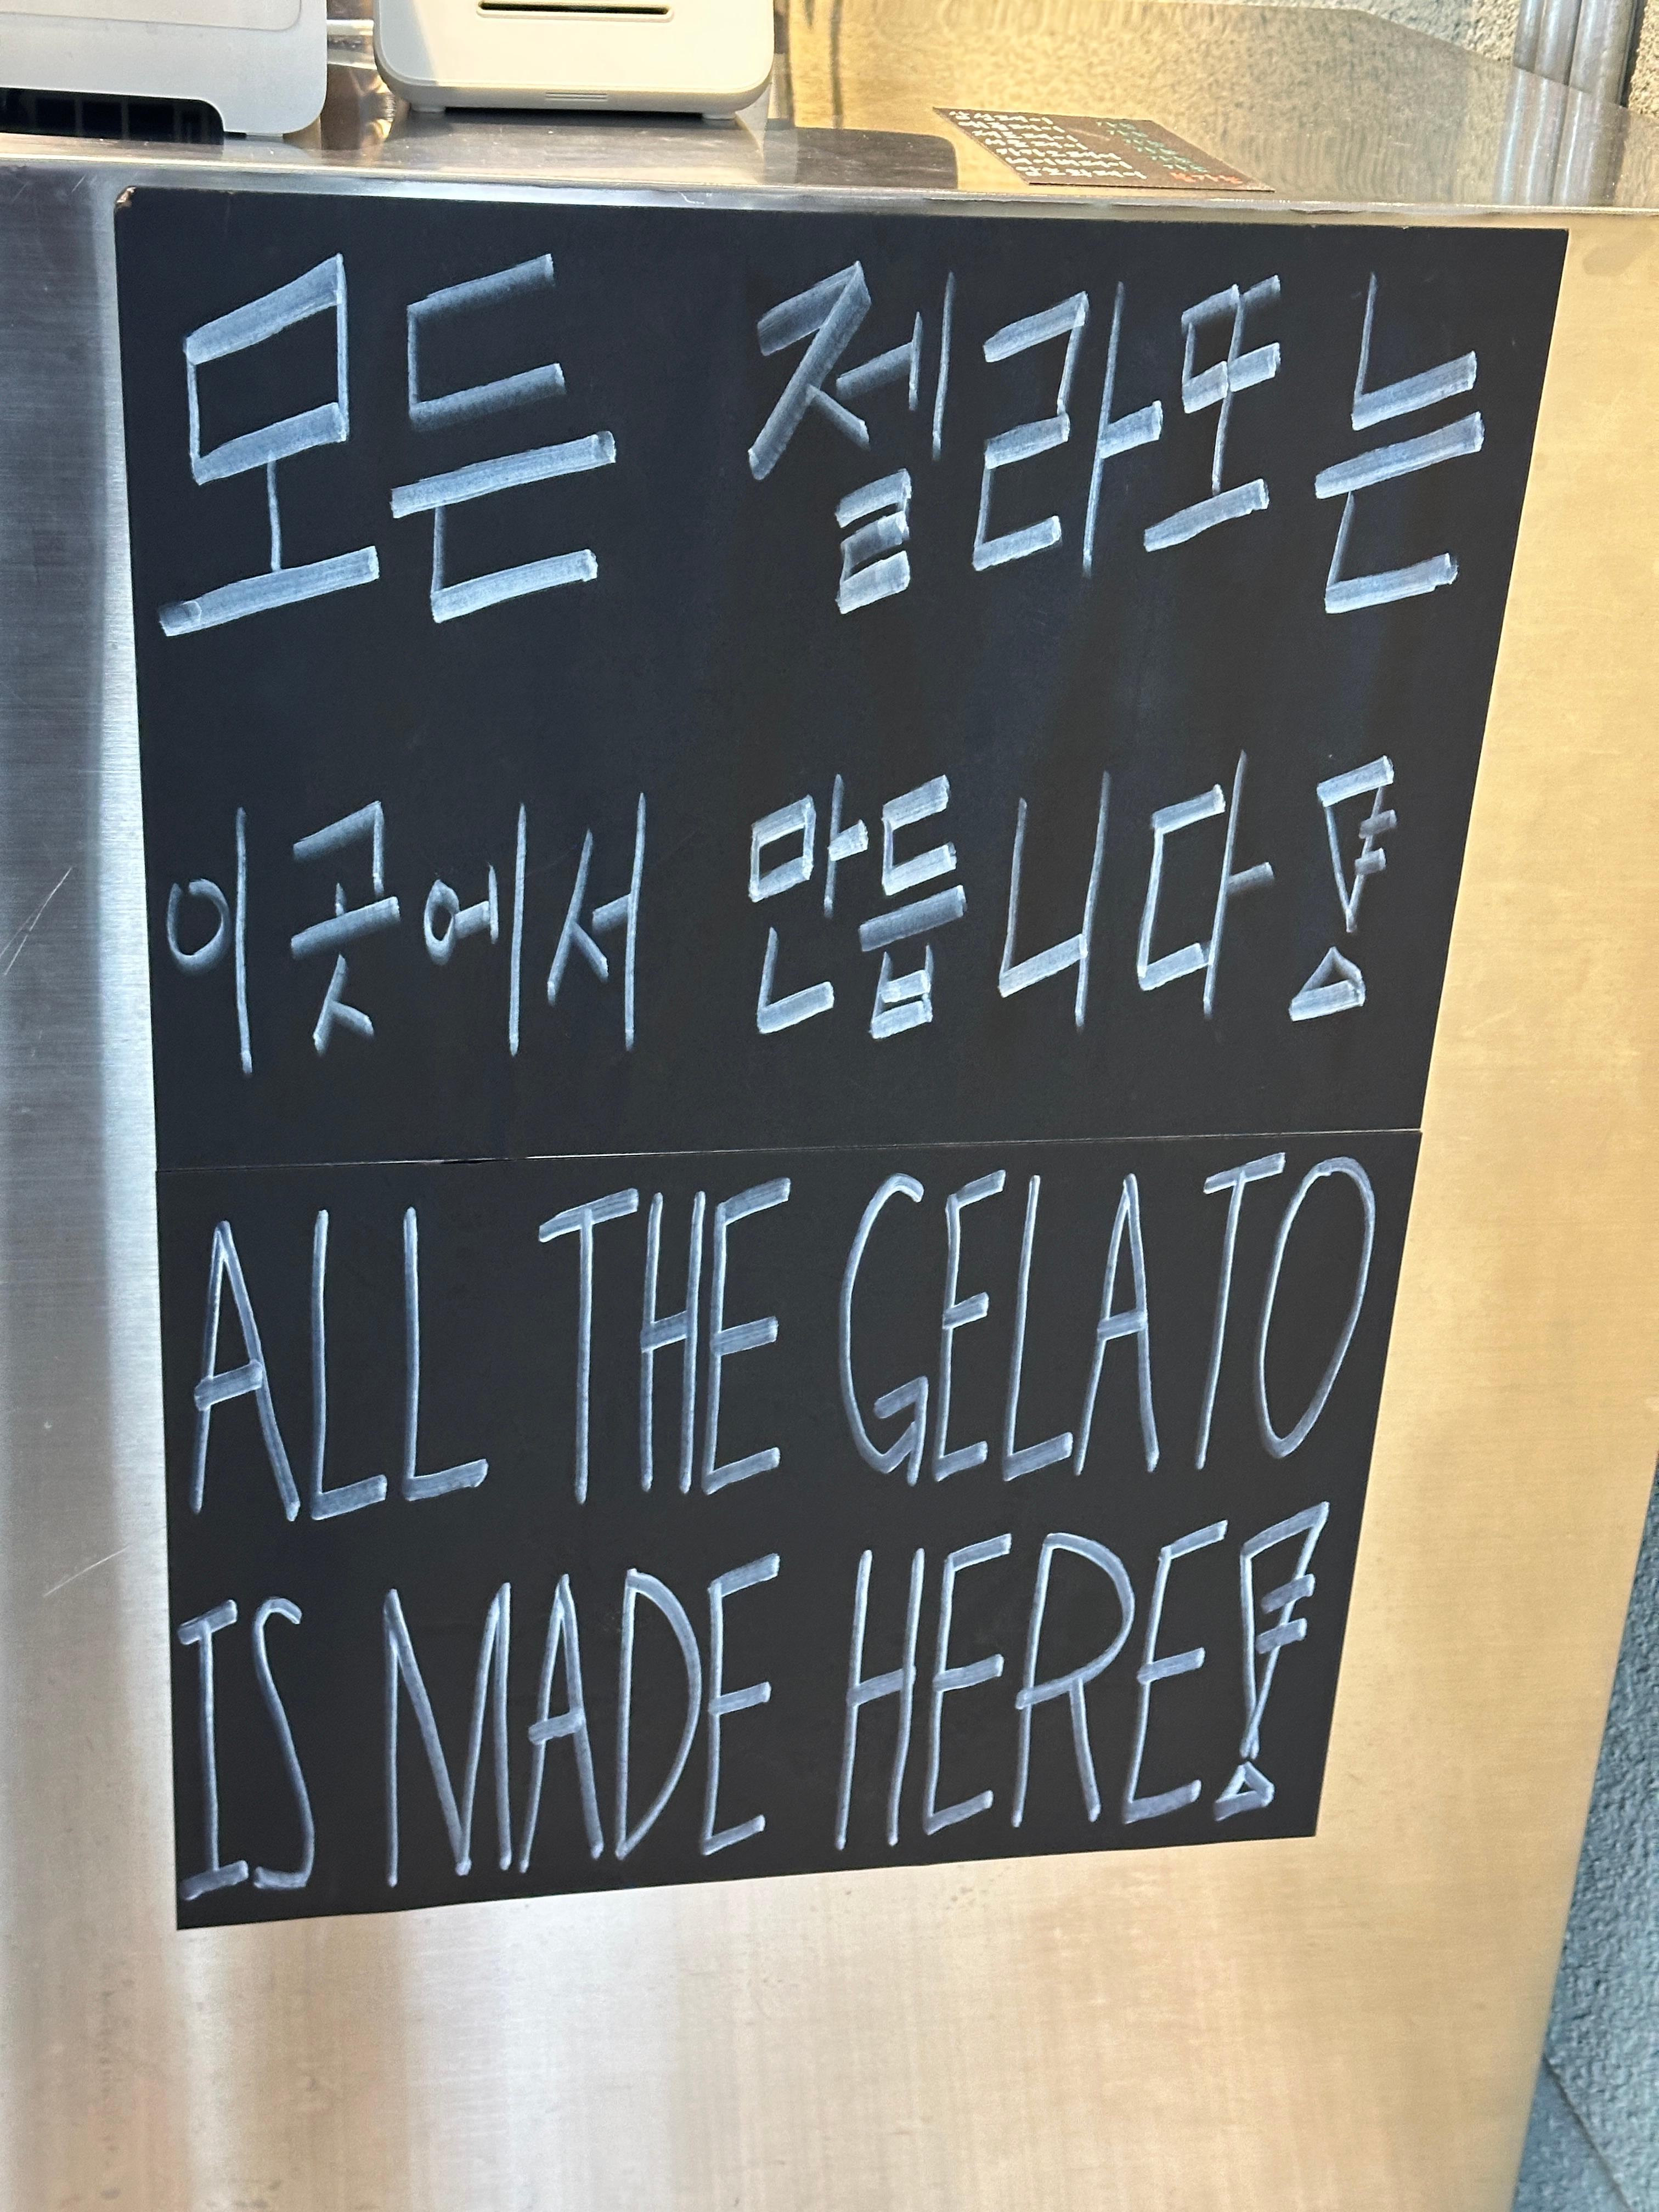 모든 젤라또는
이곳에서 만듭니다!
ALL THE GELATO
IS MADE HERE!